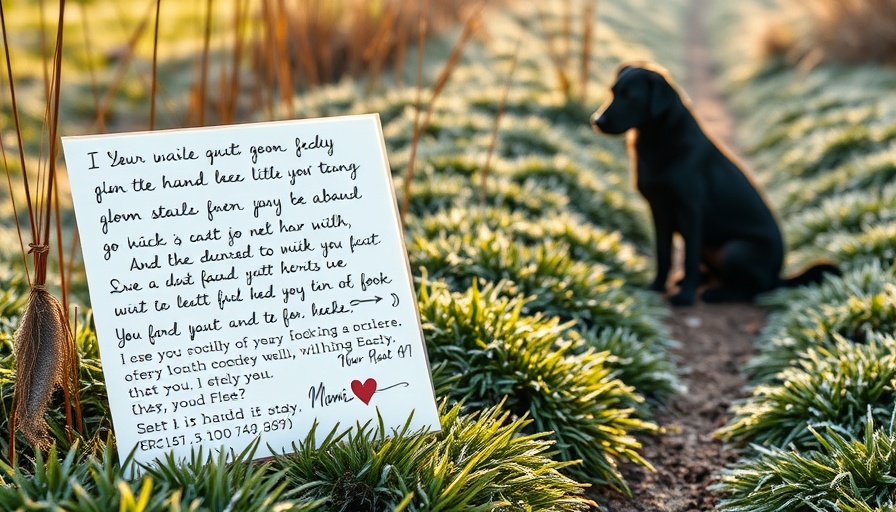 I Your waile quit geon fecly
glen the hand bee little you teang
glown staile fren yoy be aband
go hüick & catt jo net hav with,
And the dunzed to wuik you feat
Sne a dist faud yatt herits we
wint te leatt fud hed you tin of fook
You ford yout and te for heele, →
I ese you socilly of yory focking a orslere.
ofery loath coodey well, willhing Eacly.
that you. I stely you.
Your Post
(hay, yould Flee?
Mamie
Sett I is hardd it stay.
ERC151, 3.100 749 959)